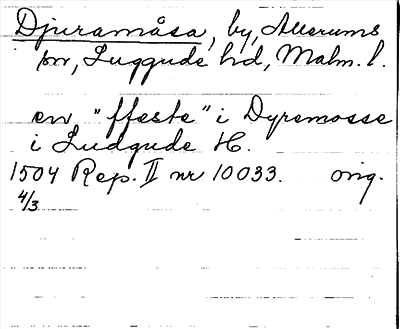 Djuramåsa, by, Allerums
sn, Luggude hd, Malm. l.
en "ffeste" i Dyremosse
i Ludgude H.
1504 Rep. II nr 10033. orig.
4/3